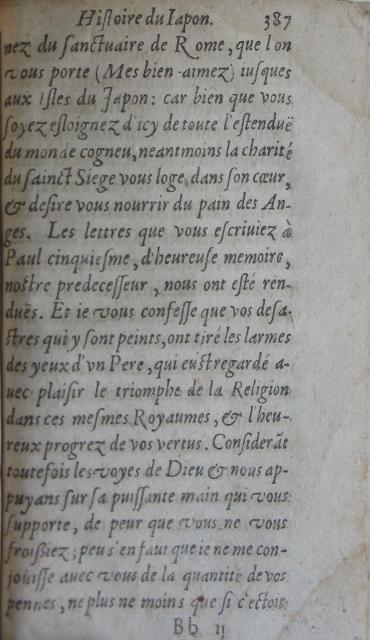 Histoire du Iapon. 387
nez du sanctuaire de Rome, que l'on
vous porte (Mes bien-aimez) iusques
aux Isles du Japon: car bien que vous
soyez esloignez d'icy de toute l'estenduë
du monde cogneu, neantmoins la charité
du sainct Siege vous loge dans son cœur,
& desire vous nourrir du pain des An-
ges. Les lettres que vous escriuiez à
Paul cinquiesme, d'heureuse memoire,
nostre predecesseur, nous ont esté ren-
duës. Et ie vous confesse que vos desa-
stres qui y sont peints, ont tiré les larmes
des yeux d'vn Pere, qui eust regardé a-
uec plaisir le triomphe de la Religion
dans ces mesmes Royaumes, & l'heu-
reux progrez de vos vertus. Considerãt
toutefois les voyes de Dieu & nous ap-
puyans sur sa puissante main qui vous
supporte, de peur que vous ne vous
froissiez; peu s'en faut que ie ne me con-
jouisse auec vous de la quantité de vos
pennes, ne plus ne moins que si c'estoit
Bb ij